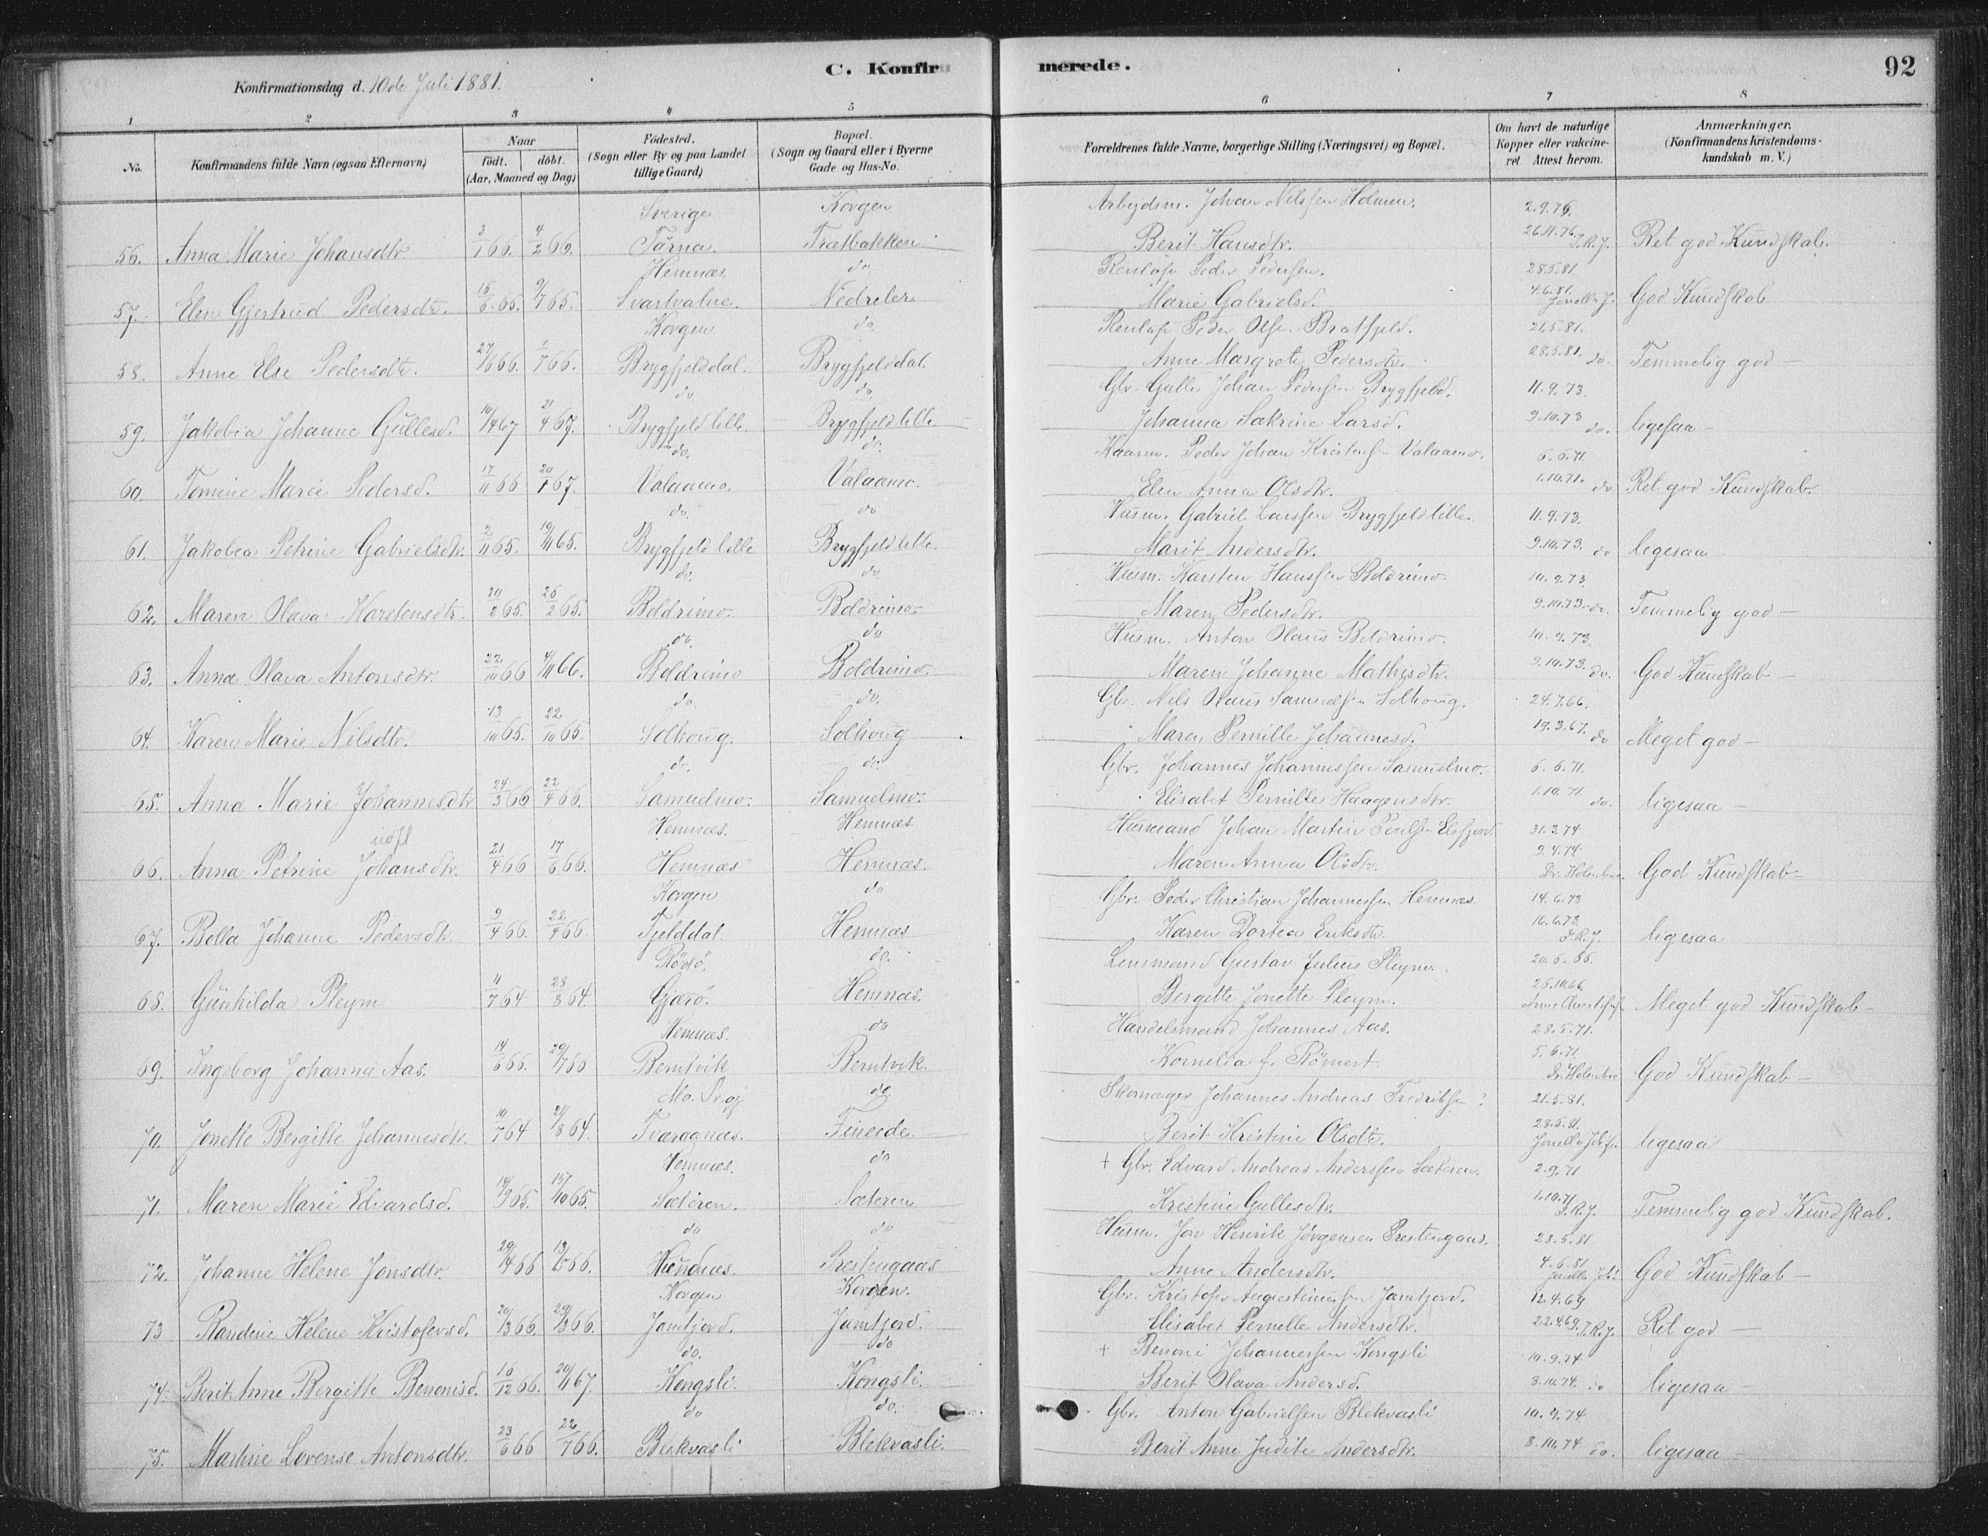 C. Konfirmerede.
92
Konfirmationsdag d. 10de Juli 1881.
1 2 3 4 5 6 7 8
No.
Konfirmandens fulde Navn (ogsaa Efternavn)
Naar
födt. döbt.
(Aar, Maaned og Dag)
Födested.
(Sogn eller By og paa Landet
tillige Gaard)
Bopæl.
(Sogn og Gaard eller i Byerne
Gade og Hus-No.
Forældrenes fulde Navne, borgerlige Stilling (Næringsvei) og Bopæl.
Om havt de naturlige
Kopper eller vakcine-
ret. Attest herom.
Anmærkninger.
(Konfirmandens Kristendoms-
kundskab m. V.)
Sverige Korgen Arbeidsm. Johan Nilssen Holmen. 2.9.76.
56. Anna Marie Johansdtr. 2/1 66. 4/2 66. Tärna. Trætbakken Berit Hansdtr. 26.11.76. J.R.J. Ret god Kundskab.
Hemnæs. do. Renlöp Peder Pedersen. 28.5.81.
57. Elen Gjertrud Pedersdtr. 15/6 65. 9/7 65. Svartvatne. Nedreler Marie Gabrielsd. 4.6.81. God Kundskab
Korgen do. Renlöp Peder Olsen Bratfjeld. 21.5.81.
58. Anne Else Pedersdtr. 27/6 66. 1/7 66. Brygfjelddal. Brygfjelddal. Anne Margrete Pedersdtr. 28.5.81. do Temmelig god —
do. do Gbr. Gulle Johan Pedersen Brygfjeld. 11.9.73.
59. Jakobia Johanne Gullesd. 10/4 67 21/4 67. Brygfjeld lille Brygfjeld lille Johanna Sakrine Larsd. 9.10.73 do. ligesaa —
do. do. Kaarm. Peder Johan Kristensen Valaamo. 6.6.71.
60. Tomine Marie Pedersd. 17/11 66 20/1 67. Valaamo. Valaamo. Elen Anna Olsdtr. 1.10.71. do Ret god Kundskab.
do. do Husm. Gabriel Larssen Brygfjeld lille. 11.9.73.
61. Jakobea Petrine Gabrielsdtr. 2/11 65. 19/11 65. Brygfjeld lille Brygfjeld lille. Marit Andersdtr. 9.10.73. do ligesaa —
do. do. Husm. Karsten Hanssen Boldrimo. 10.9.73.
62. Maren Olava Karstensdtr. 20/2 65. 25/2 65. Boldrimo. Boldrimo. Maren Pedersdtr. 9.10.73. do. Temmelig god —
do. do Husm. Anton Olaus Boldrimo. 10.9.73.
63. Anna Olava Antonsdtr. 22/10 66 4/11 66. Boldrimo Boldrimo. Maren Johanne Mathisdtr. 9.10.73. do. God Kundskab —
do. do. Gbr. Nils Olaus Samuelsen Solhoug. 24.7.66.
64. Karen Marie Nilsdtr. 13/10 65. 22/10 65. Solhoug. Solhoug Maren Pernille Johannesd. 19.3.67. do Meget god —
do. do. Gbr. Johannes Johannessen Samuelmo. 6.6.71.
65. Anna Marie Johannesdtr. 24/3 66 22/4 66. Samuelmo. Samuelmo. Elisabet Pernille Haagensdtr. 1.10.71. do. ligesaa —
Hemnæs. Hemnæs. Husmand Johan Martin Poulsen Elsfjord. 31.3.74
66. Anna Petrine Johansdtr. 21/4 66 17/6 66. Hemnæs Hemnæs. Maren Anna Olsdtr. 9.4.74 God Kundskab —
Korgen do Gbr. Peder Christian Johannessen Hemnæs. 14.6.73
67. Bolla Johanne Pedersdtr. 9/4 66. 22/4 66. Fjelddal. Hemnæs Karen Dortea Eriksdtr. 16.6.73. J.R.J. ligesaa
Rödö. do. Lensmand Gustav Julius Pleym. 20.6.66.
68. Gunhilda Pleym 11/7 64 28/8 64. Gjerö. Hemnæs. Bergitte Jonette Pleym. 26.10.66. Meget god Kundskab —
Hemnæs. do Handelsmand Johannes Aas. 28.5.71.
69. Ingeborg Johanna Aas. 14/6 66. 29/7 66 Berntvik Berntvik. Kornelia f. Römert. 5.6.71. God Kundskab —
do. Skomager Johannes Andreas Fredriksen? 21.5.81.
70. Jonette Bergitte Johannesdtr. 10/7 64 21/8 64. Tværaanæs. Fineide Berit Kristine Olsdtr. 28.5.81. ligesaa
Hemnæs. do + Gbr. Edvard Andreas Anderssen Sæteren. 2.9.71
71. Maren Marie Edvardsd. 14/9 65. 15/10 65. Sæteren. Sæteren Kristine Gullesdtr. 1.10.71 J.R.J. Temmelig god Kundskab.
do do Husm. Jon Henrik Jörgensen Prestengaas. 28.5.81
72. Johanne Helene Jonsdtr. 29/4 66 13/5 66. Hemnæs. Prestengaas Anne Andersdtr. 4.6.81 God Kundskab —
Korgen Korgen. Gbr. Kristofer Augustinussen Jamtjord. 12.4.69
73 Randine Helene Kristofersd. 20/3 66 29/3 66. Jamtjord. Jamtjord. Elisabet Pernille Andersdtr. 22.4.69. J.R.J. Ret god —
do. do + Benoni Johannessen Kongsli 10.9.74
74. Berit Anne Bergitte Benonisd. 16/12 66. 20/1 67. Kongsli. Kongsli. Berit Olava Andersd. 8.10.74. do ligesaa —
do do. Gbr. Anton Gabrielsen Blekvasli 10.9.74
75. Martine Lovense Antonsdtr. 23/6 66 22/7 66. Blekvasli Blekvasli. Berit Anne Judite Andersdtr. 8.10.74. do. ligesaa —